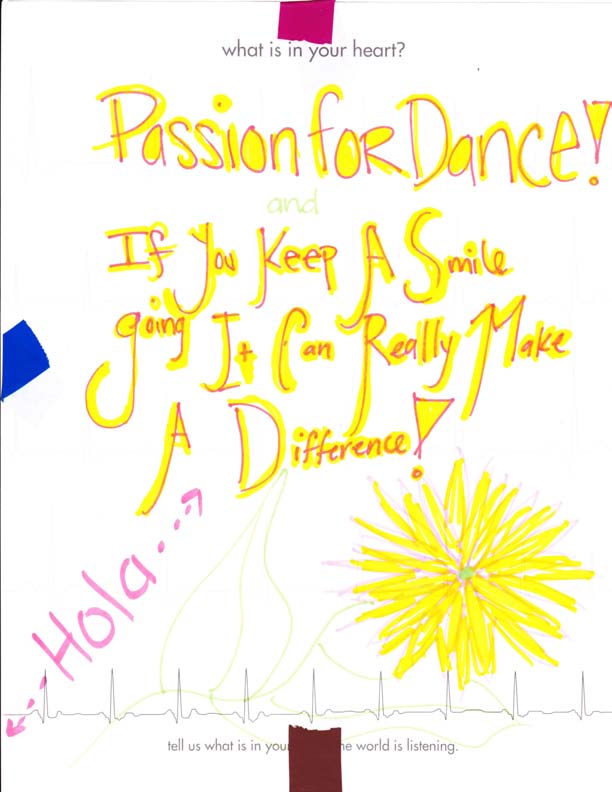 what is in your heart?
Passion for Dance!
and
If You Keep A Smile
going It Can Really Make
A Difference!
Hola
tell us what is in your he world is listening.